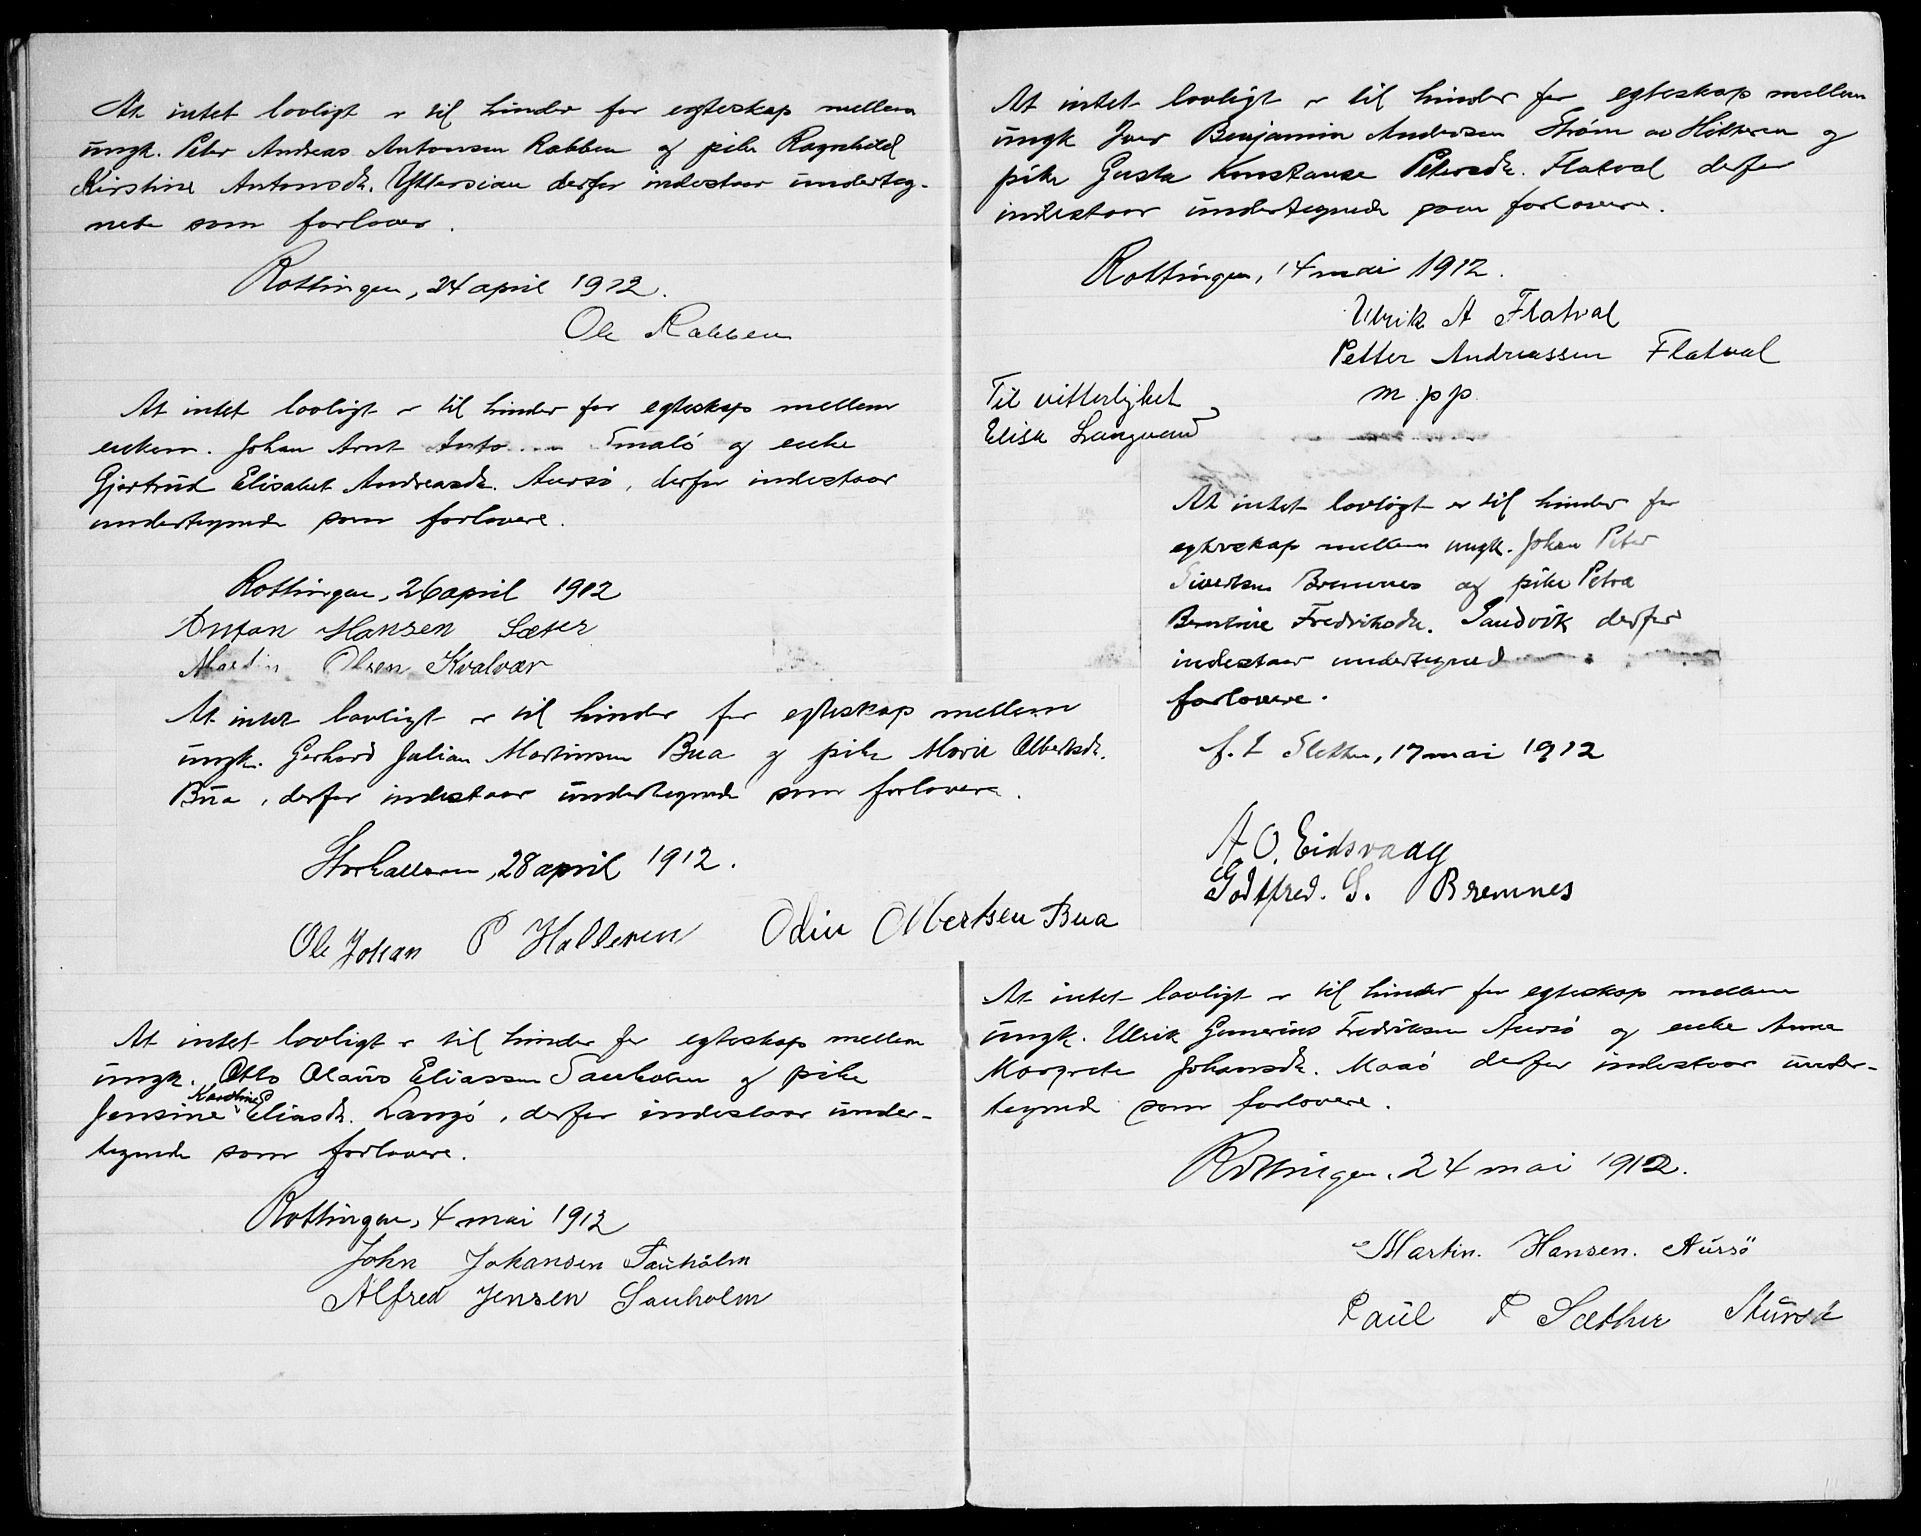 At intet lovligt er til hinder for egteskap mellem
ungk. Peter Andreas Antonsen Rabben og pike Ragnhild
Kirstine Antonsdr. Yttersian derfor indestaar underteg-
nede som forlover.
Rottingen, 24 april 1912.
Ole Rabben
At intet lovligt er til hinder for egteskap mellem
enkem. Johan Arnt Smalö og enke
Gjertrud Elisabet Andreasdr. Aursö, derfor indestaar
undertegnede som forlovere.
Rottingen, 26 april 1912
Anton Hansen Sæter
Martin Olsen Kvalvær
At intet lovligt er til hinder for egteskap mellem
ungk. Gerhard Julian Martinsen Bua og pike Marie Albertsdr.
Bua, derfor indestaar undertegnede som forlovere.
Storhalleren, 28 april 1912.
Ole Johan P Halleren Odin Albertsen Bua
At intet lovligt er til hinder for egteskap mellem
ungk. Otto Olaus Eliassen Sauholm og pike
Jensine Karoline Eliasdr. Langö, derfor indestaar under-
tegnede som forlovere.
Rottingen, 4 mai 1912
John Johansen Sauholm
Alfred Jensen Sauholm
At intet lovligt er til hinder for egteskap mellem
ungk Iver Benjamin Andersen Strøm av Hitteren og
pike Gusta Konstanse Petersdr. Flatval derfor
indestaar undertegnede som forlovere.
Rottingen, 14 mai 1912.
Ulrik A Flatval
Petter Andreassen Flatval
m.p.p.
Til vitterlighet
Elise
At intet lovligt er til hinder for
egteskap mellem ungk. Johan Peter
Sivertsen Bremnes og pike Petra
Berntine Fredriksdr. Sandvik derfor
indestaar undertegnede
forlovere.
f. t Sletten, 17 mai 1912
A O. Eidsvaag
Godtfred. S. Bremnes
At intet lovligt er til hinder for egteskap mellem
ungk. Ulrik Gunerius Fredriksen Aursö og enke Anna
Margrete Johansdr. Masö derfor indestaar under-
tegnede som forlovere.
Rottingen, 24 mai 1912.
Martin. Hansen. Aursö
Paul P Sæther